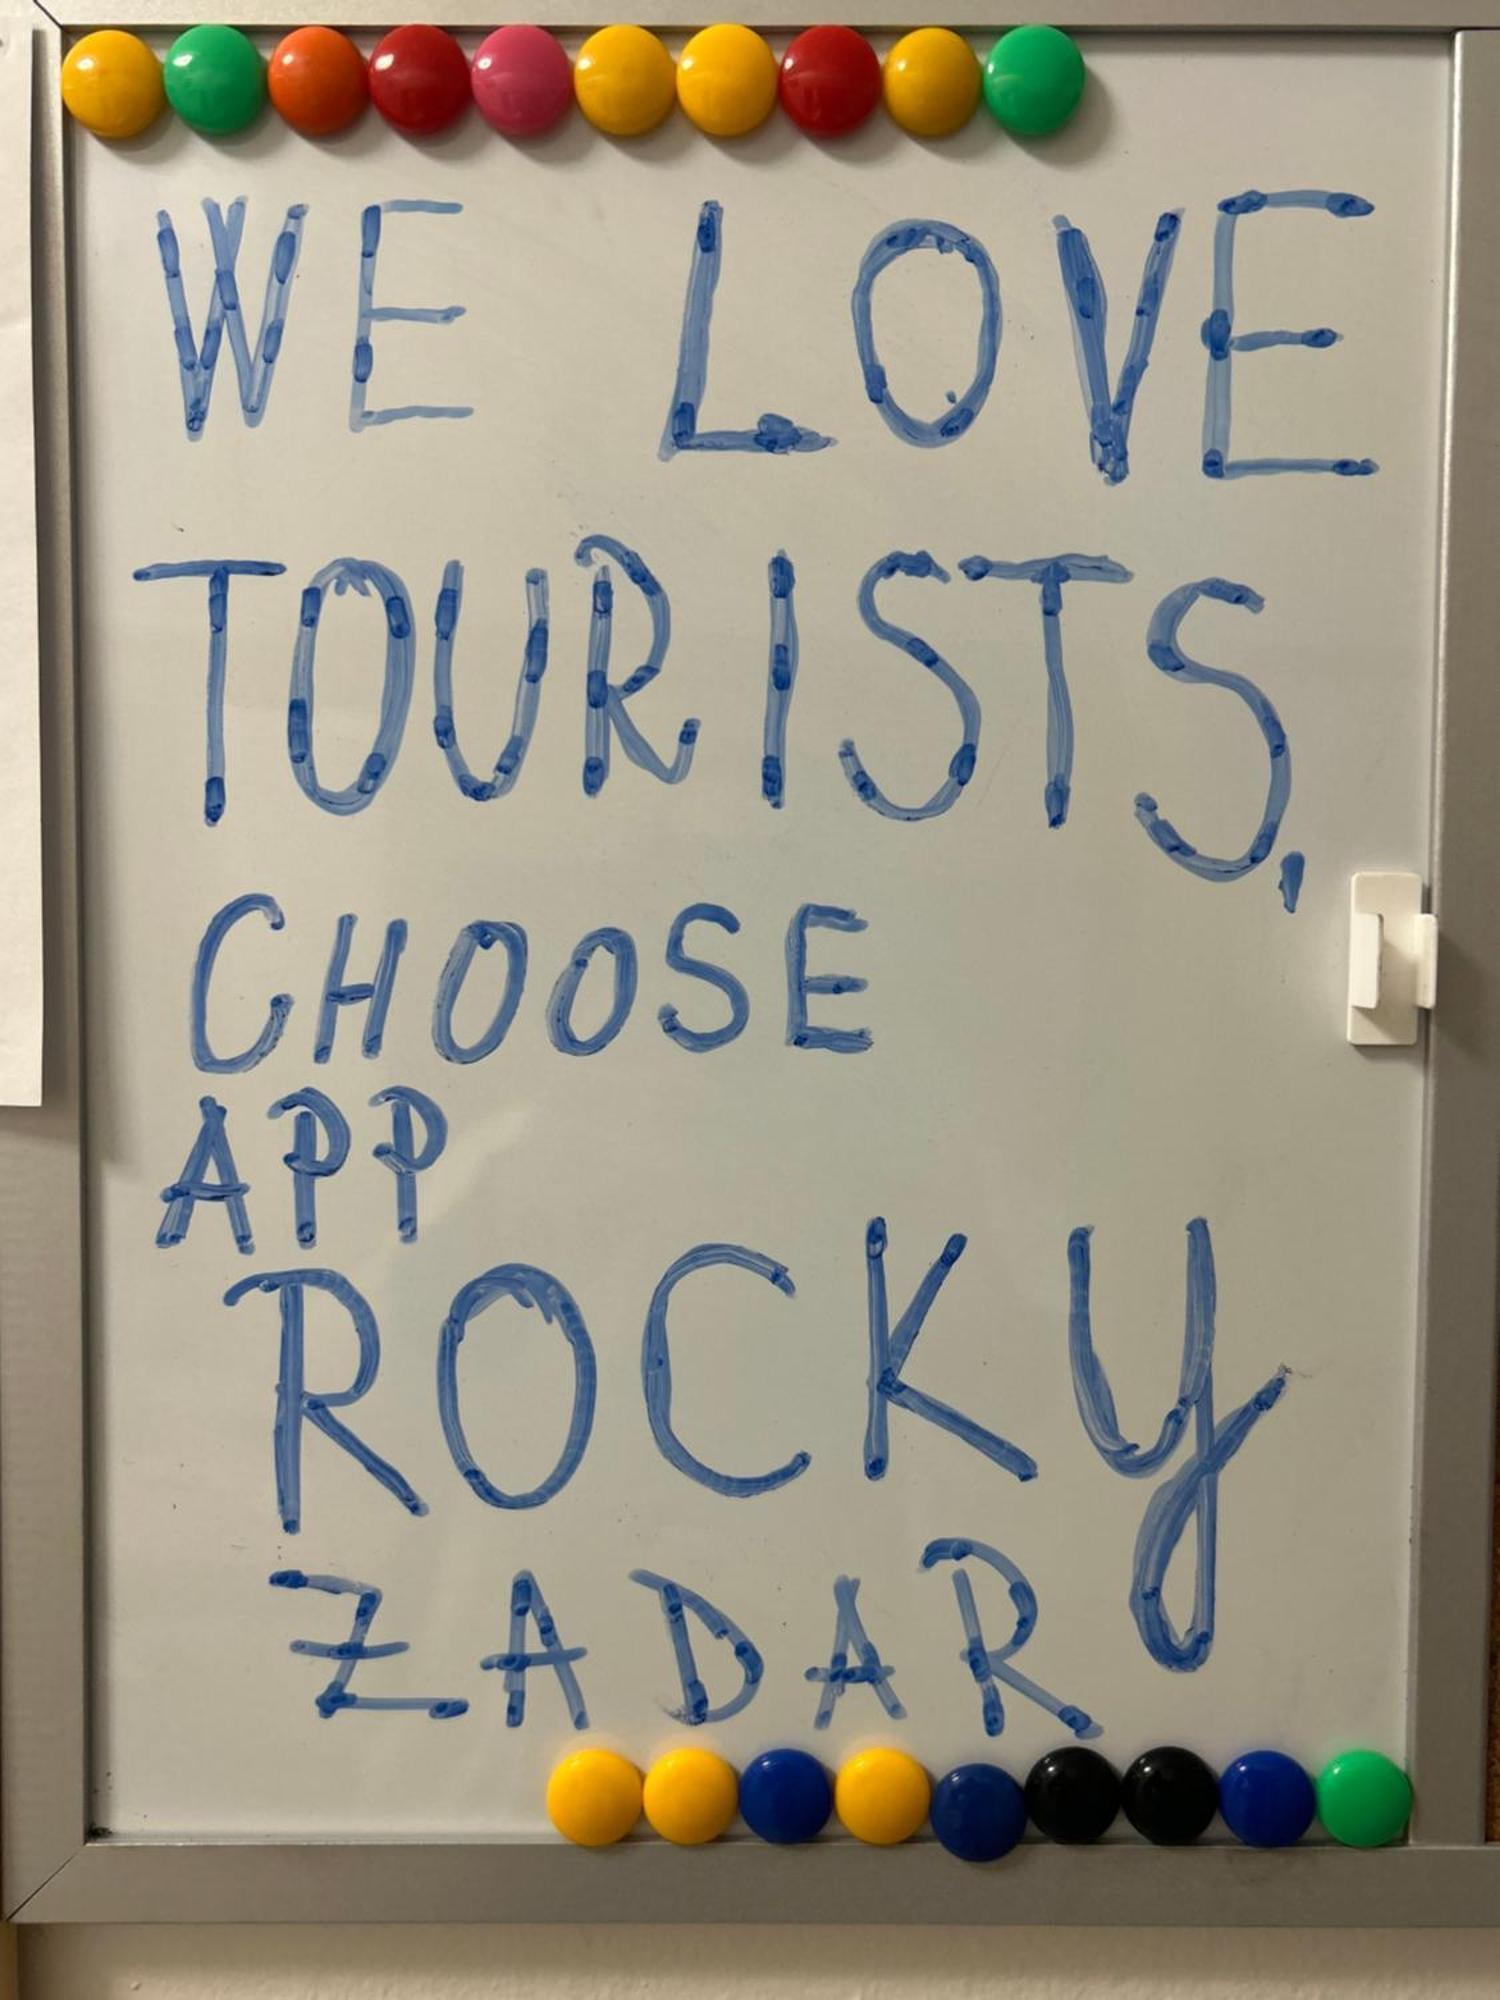 WE LOVE
TOURISTS,
CHOOSE
APP
ROCKY
ZADAR